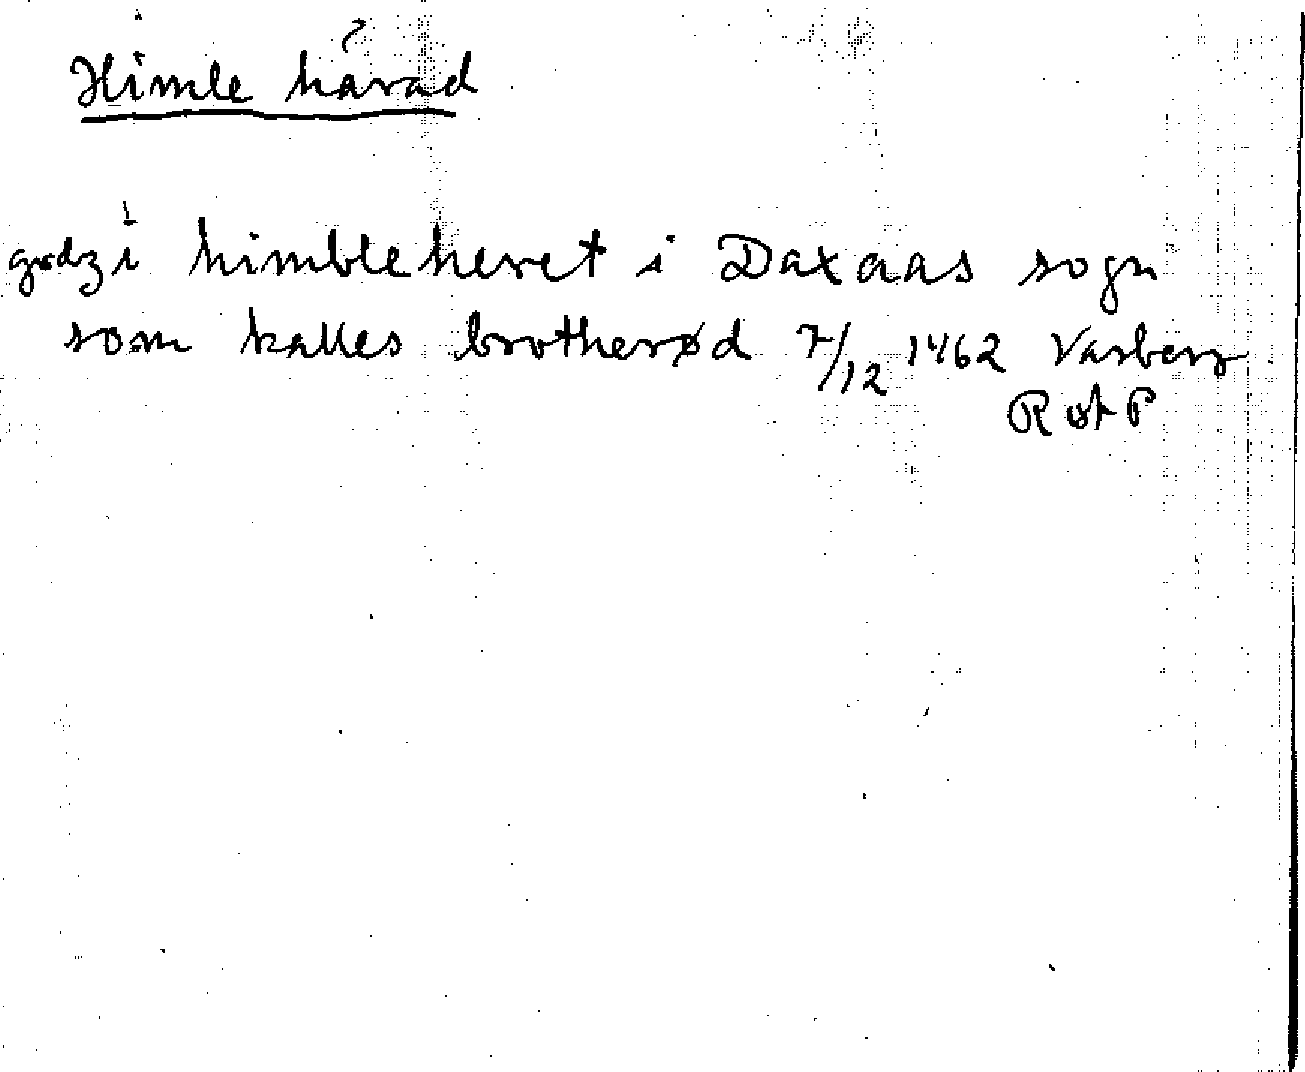 Himle härad
godz i himbleheret i Daxaas sogn
som kalles brotherød 7/12 1462 Varberg
RAP